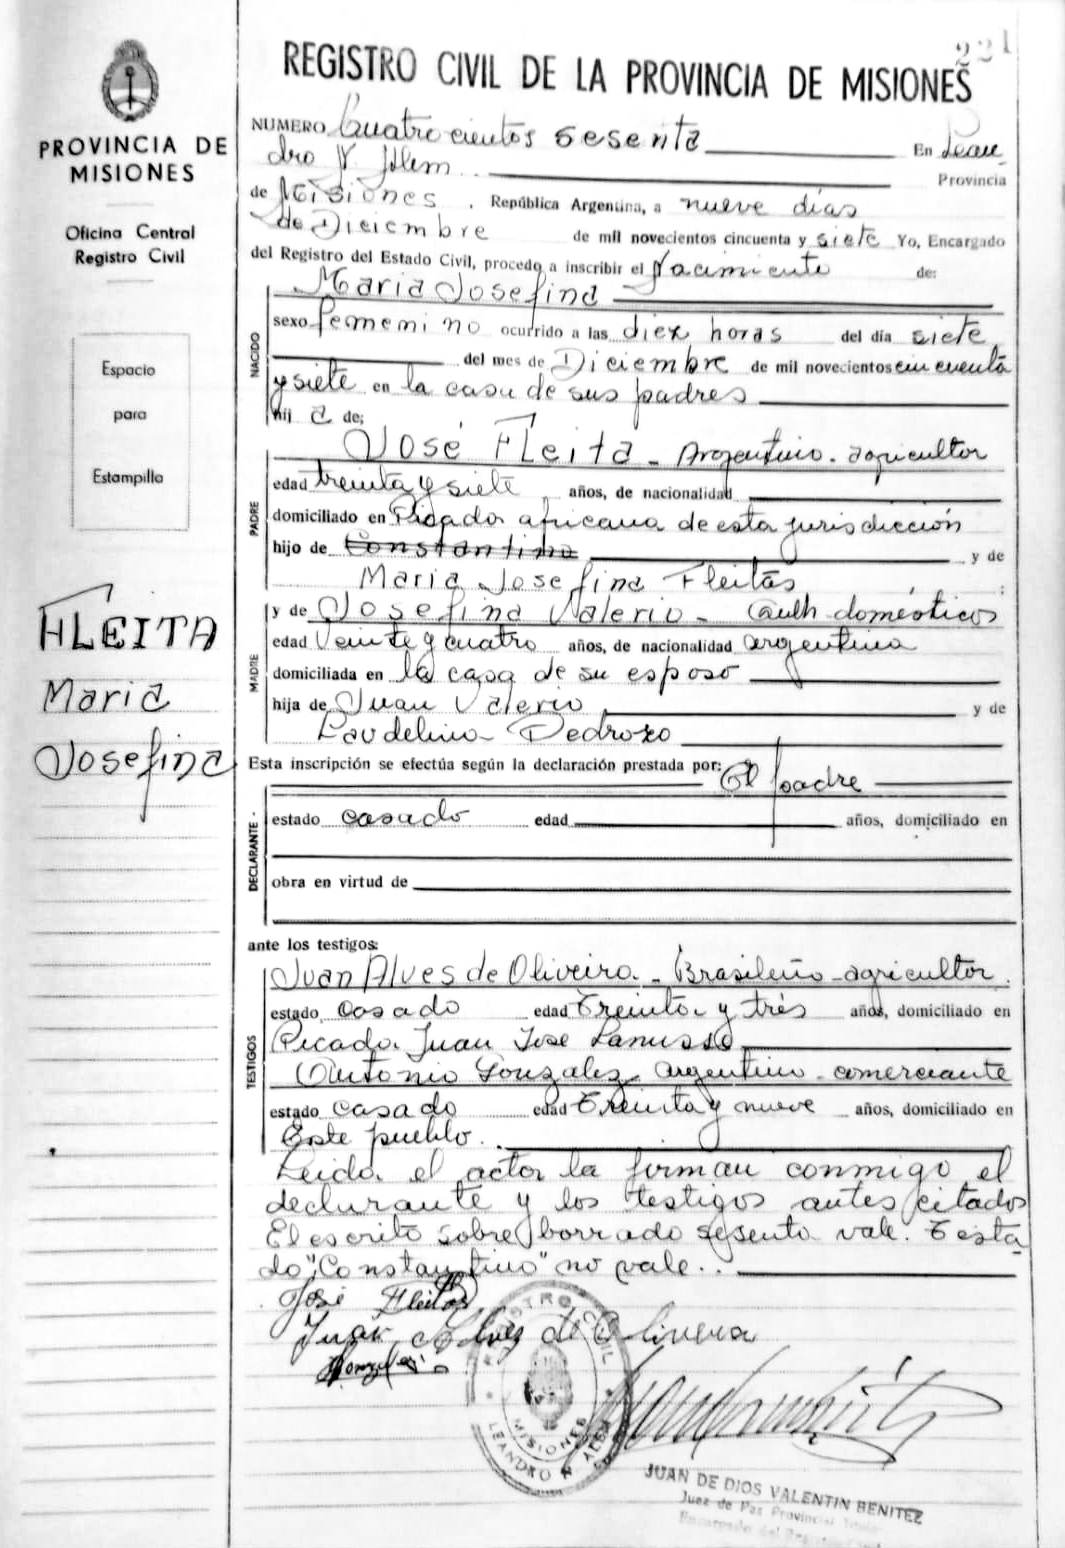 221
REGISTRO CIVIL DE LA PROVINCIA DE MISIONES
PROVINCIA DE
MISIONES
Oficina Central
Registro Civil
Espacio
para
Estampilla
FLEITA
Maria
Josefina
NUMERO Cuatrocientos sesenta En Lean
dro N. Alem Provincia
de Misiones. República Argentina, a nueve dias
de Diciembre de mil novecientos cincuenta y siete Yo, Encargado
del Registro del Estado Civil, procedo a inscribir el Nacimiento de:
NACIDO
Maria Josefina
sexo femenino ocurrido a las diez horas del día siete
del mes de Diciembre de mil novecientos cincuenta
y siete en la casa de sus padres
hij a de:
PADRE
José Fleita - Argentino - agricultor
edad treinta y siete años, de nacionalidad
domiciliado en Picada africana de esta jurisdicción
hijo de Constantino y de
Maria Josefina Fleitas
MADRE
y de Josefina Valerio - Queh. domésticos
edad Veinte y cuatro años, de nacionalidad argentina
domiciliada en la casa de su esposo
hija de Juan Valerio y de
Laudelina Pedrozo
Esta inscripción se efectúa según la declaración prestada por: El padre
DECLARANTE
estado casado edad años, domiciliado en
obra en virtud de
ante los testigos:
TESTIGOS
Juan Alves de Oliveira - Brasileño - agricultor
estado casado edad treinta y trés años, domiciliado en
Picada Juan José Lanusse
Antonio Gonzalez argentino - comerciante
estado casado edad treinta y nueve años, domiciliado en
Este pueblo.
Leida el acta la firman conmigo el
declarante y los testigos antes citados
El escrito sobre borrado sesenta vale. Testa
do "Constantino" no vale..
José Fleitas
Juan Alvez de Olivera
Gonzalez
REGISTRO CIVIL
MISIONES
LEANDRO N. ALEM
JUAN DE DIOS VALENTIN BENITEZ
Juez de Paz Provincial Titular
Encargado del